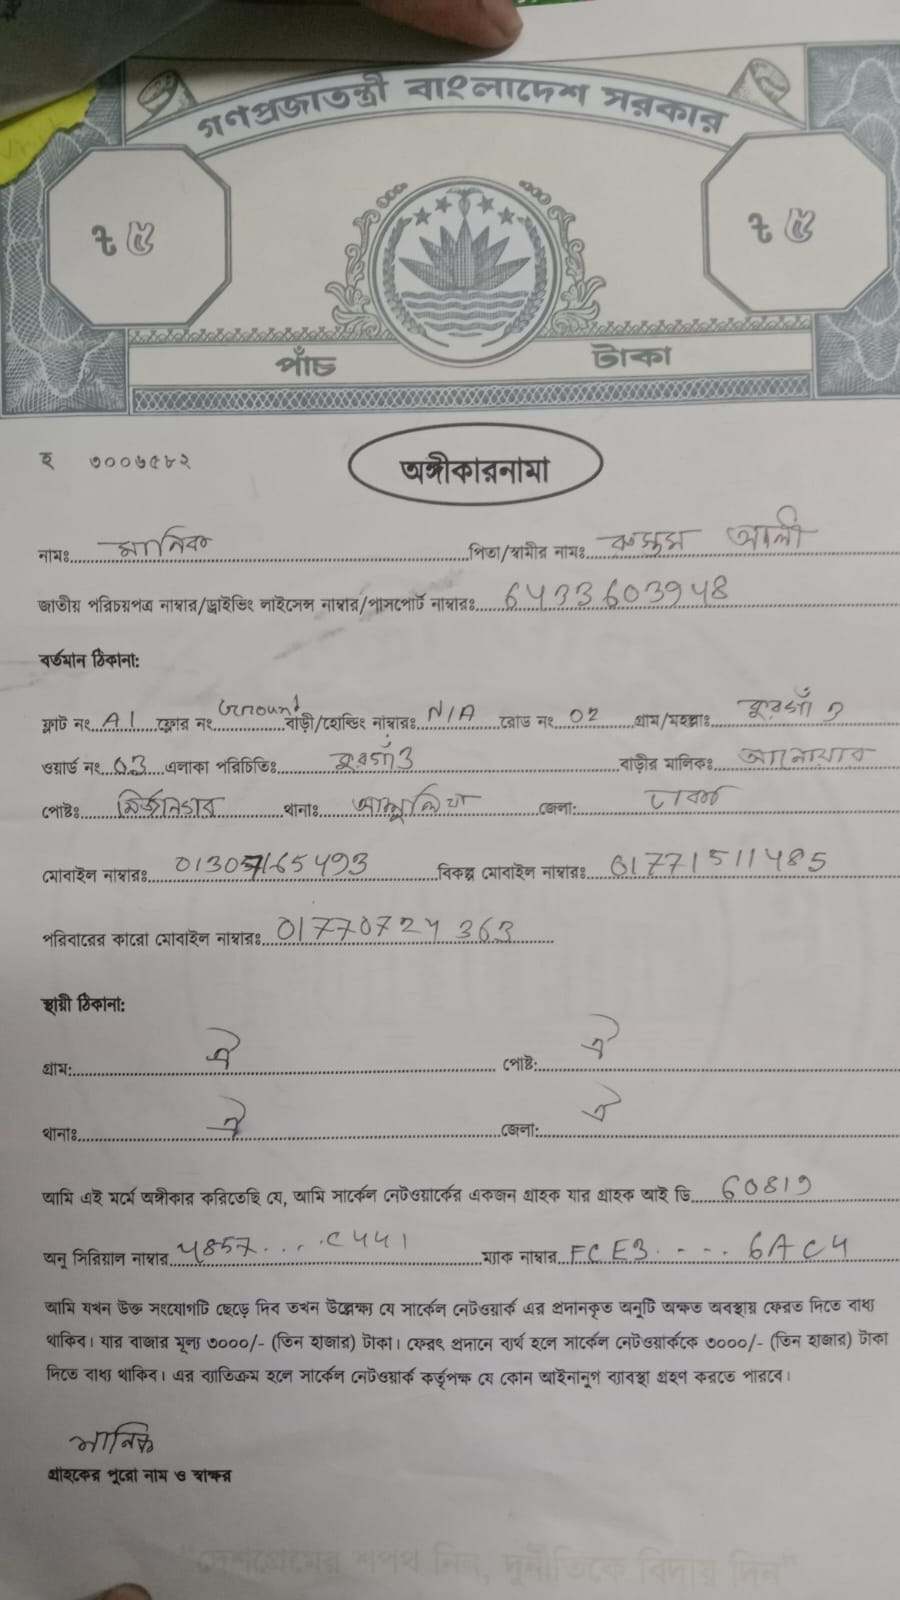 গণপ্রজাতন্ত্রী বাংলাদেশ সরকার
৳ ৫ ৳ ৫
পাঁচ টাকা
হ ৩০০৬৫৮২
অঙ্গীকারনামা
নামঃ মানিক পিতা/স্বামীর নামঃ রুস্তম আলী
জাতীয় পরিচয়পত্র নাম্বার/ড্রাইভিং লাইসেন্স নাম্বার/পাসপোর্ট নাম্বারঃ 6433603948
বর্তমান ঠিকানা:
ফ্লাট নং A1 ফ্লোর নং Ground বাড়ী/হোল্ডিং নাম্বারঃ N/A রোড নং 02 গ্রাম/মহল্লাঃ কুরগাঁও
ওয়ার্ড নং 03 এলাকা পরিচিতিঃ কুরগাঁও বাড়ীর মালিকঃ আনোয়ার
পোষ্টঃ মির্জানগর থানাঃ আশুলিয়া জেলা: ঢাকা
মোবাইল নাম্বারঃ বিকল্প মোবাইল নাম্বারঃ 01771511485
পরিবারের কারো মোবাইল নাম্বারঃ 01770724363
স্থায়ী ঠিকানা:
গ্রাম: ঐ পোষ্ট: ঐ
থানাঃ ঐ জেলা: ঐ
আমি এই মর্মে অঙ্গীকার করিতেছি যে, আমি সার্কেল নেটওয়ার্কের একজন গ্রাহক যার গ্রাহক আই ডি 60819
অনু সিরিয়াল নাম্বার 4857....C441 ম্যাক নাম্বার FCE3....6AC4
আমি যখন উক্ত সংযোগটি ছেড়ে দিব তখন উল্লেক্ষ্য যে সার্কেল নেটওয়ার্ক এর প্রদানকৃত অনুটি অক্ষত অবস্থায় ফেরত দিতে বাধ্য
থাকিব। যার বাজার মূল্য ৩০০০/- (তিন হাজার) টাকা। ফেরৎ প্রদানে ব্যর্থ হলে সার্কেল নেটওয়ার্ককে ৩০০০/- (তিন হাজার) টাকা
দিতে বাধ্য থাকিব। এর ব্যতিক্রম হলে সার্কেল নেটওয়ার্ক কর্তৃপক্ষ যে কোন আইনানুগ ব্যাবস্থা গ্রহণ করতে পারবে।
মানিক
গ্রাহকের পুরো নাম ও স্বাক্ষর
"দেশপ্রেমের শপথ নিন, দুর্নীতিকে বিদায় দিন"